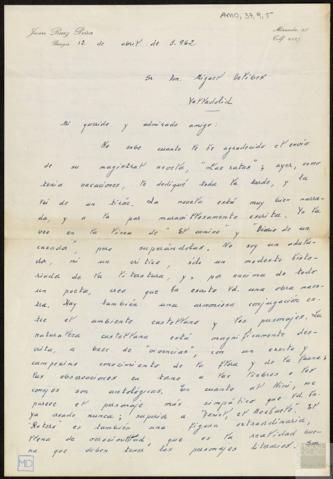 AMD, 37, 9, 5
Juan Ruiz Peña
Burgos 12 de abril de 1.962
Miranda,
Telf.
Sr. Don Miguel Delibes
Valladolid
Mi querido y admirado amigo:
No sabe cuanto le he agradecido el envío
de su magistral novela, "Las ratas"; ayer, como
tenía vacaciones, le dediqué toda la tarde, y la
leí de un tirón. La novela está muy bien narra-
da, y a la par maravillosamente escrita. Yo la
veo en la línea de "El camino" y "Diario de un
cazador", pero superándolas. No soy un adula-
dor, ni un crítico, sólo un modesto histo-
riador de la literatura, y, por encima de todo
un poeta, creo que ha escrito Vd. una obra maes-
tra. Hay también una armoniosa conjugación en-
tre el ambiente castellano y los personajes. La
naturaleza castellana está magníficamente des-
crita, a base de "vivencias", con un exacto y
campesino conocimiento de la flora y de la fauna;
sus observaciones en torno a las liebres o los
conejos son antológicas. En cuanto al Nini, me
parece el personaje más simpático que Vd. ha-
ya creado nunca; supera a "Daniel, el Mochuelo". El
Ratero es también una figura extraordinaria,
llena de oacionalidad, que es la realidad hu-
ma que deben tener los personajes literarios. Son
MD